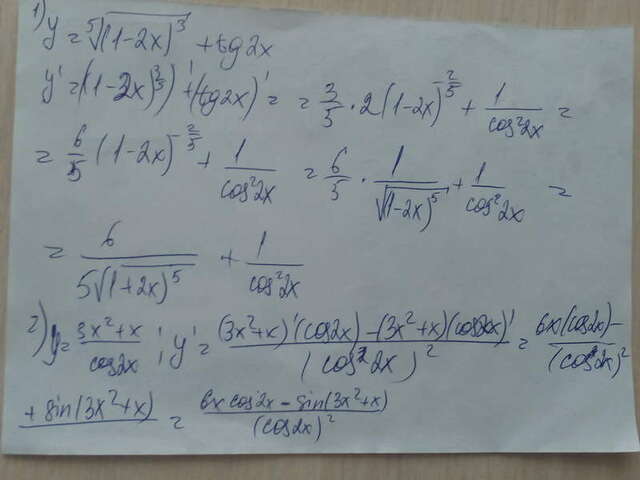 1) y = ⁵√(1-2x)³ + tg 2x
y' = ((1-2x)^(3/5))' + (tg 2x)' = = 3/5 · 2(1-2x)^(-2/5) + 1/cos²2x =
= 6/5 (1-2x)^(-2/5) + 1/cos²2x = 6/5 · 1/√(1-2x)⁵ + 1/cos²2x =
= 6/(5√(1+2x)⁵) + 1/cos²2x
2) y = (3x²+x)/cos2x ; y' = ((3x²+x)'(cos2x) - (3x²+x)(cos2x)')/(cos² 2x)² = (6x(cos2x) -)/(cos2x)²
+ sin(3x²+x) = (6x cos2x - sin(3x²+x))/(cos2x)²